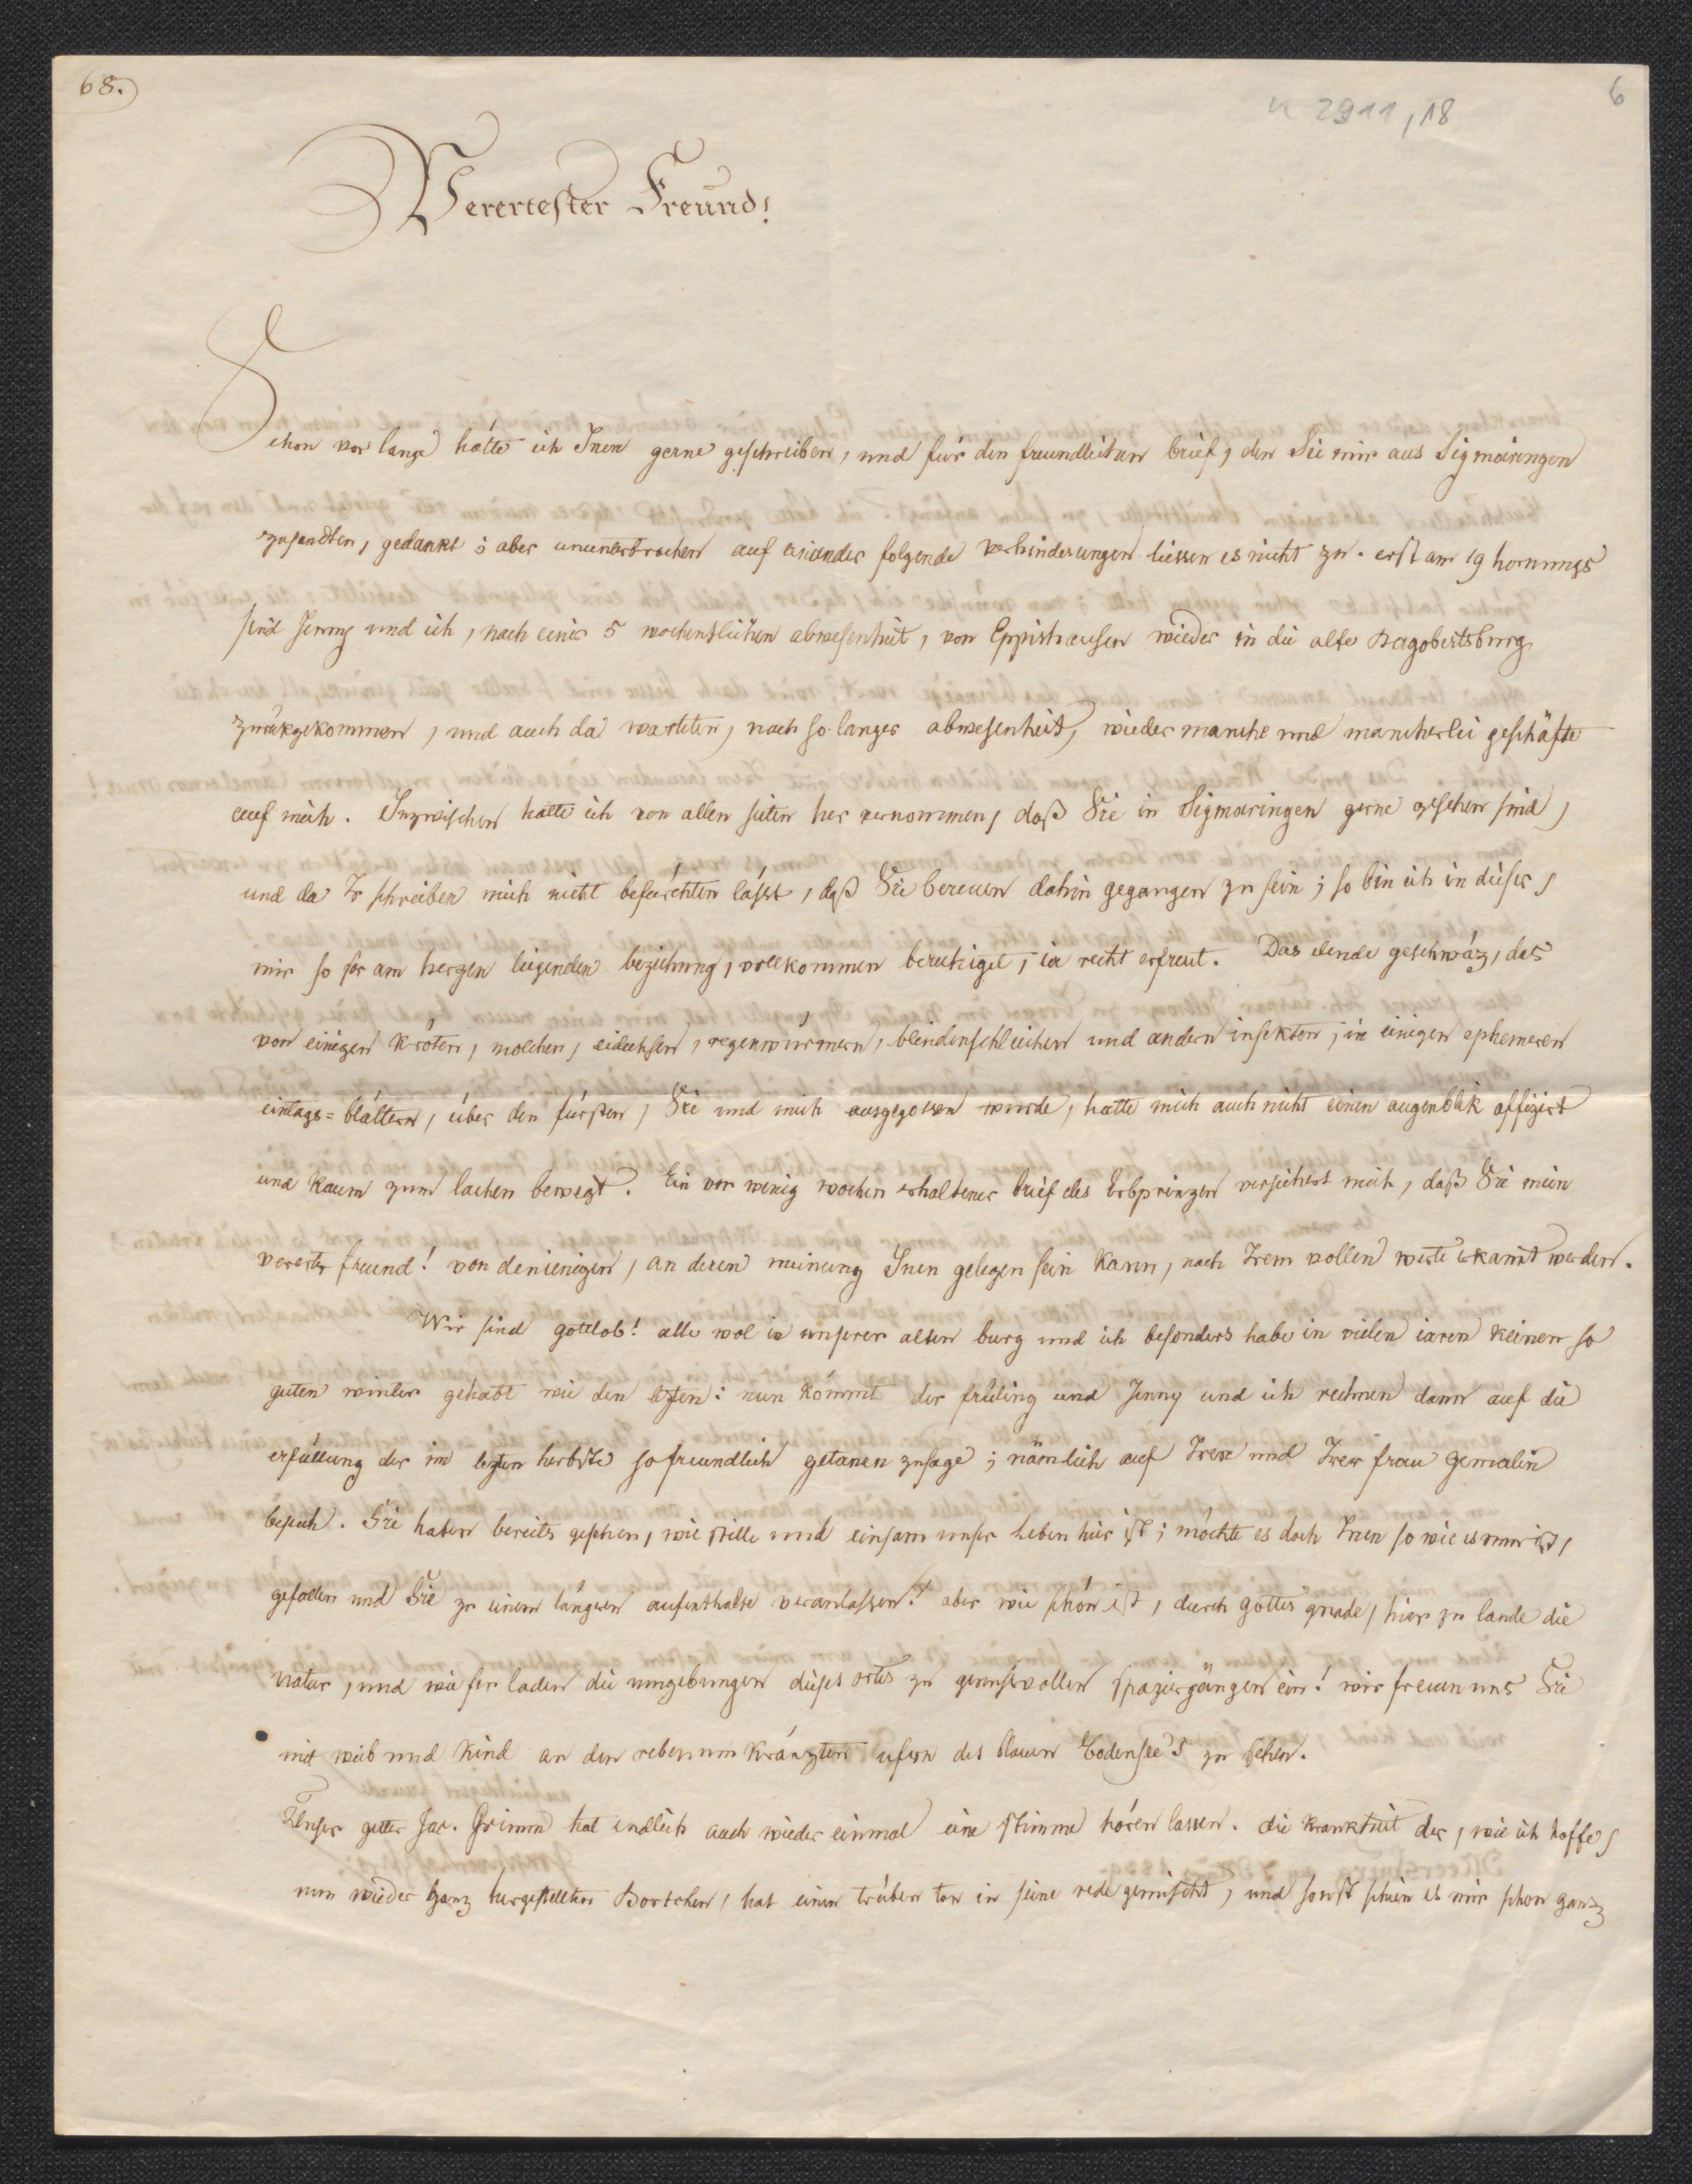 68.
n 2911,18
6
Verertester Freund!
Schon vor lange hätte ich Inen gerne geschriben, und für den freundlichen brief, den Sie mir aus Sigmaringen
zusandten, gedankt; aber ununterbrochen auf einander folgende verhinderungen liessen es nicht zu. erst am 19 hornungs
sind Jenny und ich, nach einer 5 wochentlichen abwesenheit, von Eppishausen wieder in die alte Dagobertsburg
zurükgekommen, und auch da warteten, nach so langer abwesenheit, wieder manche und mancherlei geschäfte
auf mich. Inzwischen hatte ich von allen seiten her vernommen, daß Sie in Sigmaringen gerne gesehen sind,
und da Ir schreiben mich nicht befürchten lässt, daß Sie bereuen dahin gegangen zu sein; so bin ich in diser,
mir so ser am herzen ligenden beziehung, vollkommen beruhiget, ia recht erfreut. Das elende geschwäz, das
von einigen kröten, molchen, eidechsen, regenwürmern, blindenschleichen und andern insekten, in einigen ephemeren
eintags=blättern, über den fürsten, Sie und mich ausgegossen wurde, hatte mich auch nicht einen augenblik affizirt
und kaum zum lachen bewegt. Ein vor wenig wochen erhaltener brief des Erbprinzen versichert mich, daß Sie mein
vererter freund! von denienigen, an deren meinung Inen gelegen sein kann, nach Irem vollen werte erkannt werden.
Wir sind gottlob! alle wol in unserer alten burg und ich besonders habe in vielen iaren keinen so
guten winter gehabt wie den lezten: nun kömmt der früling und Jenny und ich rechnen dann auf die
erfüllung der im lezten herbste so freundlich getanen zusage; nämlich auf Iren und Irer frau gemalin
besuch. Sie haben bereits gesehen, wie stille und einsam unser leben hier ist; möchte es doch Inen so wie es nun ist,
gefallen und Sie zu einem längern aufenthalte veranlassen! aber wie schön ist, durch gottes gnade, hier zu lande die
natur, und wie ser laden die umgebungen dises ortes zu genussvollen spaziergängen ein! wir freuen uns Sie
mit weib und kind an den rebenumkränzten ufern des blauen Bodensee's zu sehen.
Unser guter Jac. Grimm hat endlich auch wieder einmal eine stimme hören lassen. die krankheit der, wie ich hoffe,
nun wieder ganz hergestellten Dortchen, hat einen trüben ton in seine rede gemischt, und sonst schien es mir schon ganz